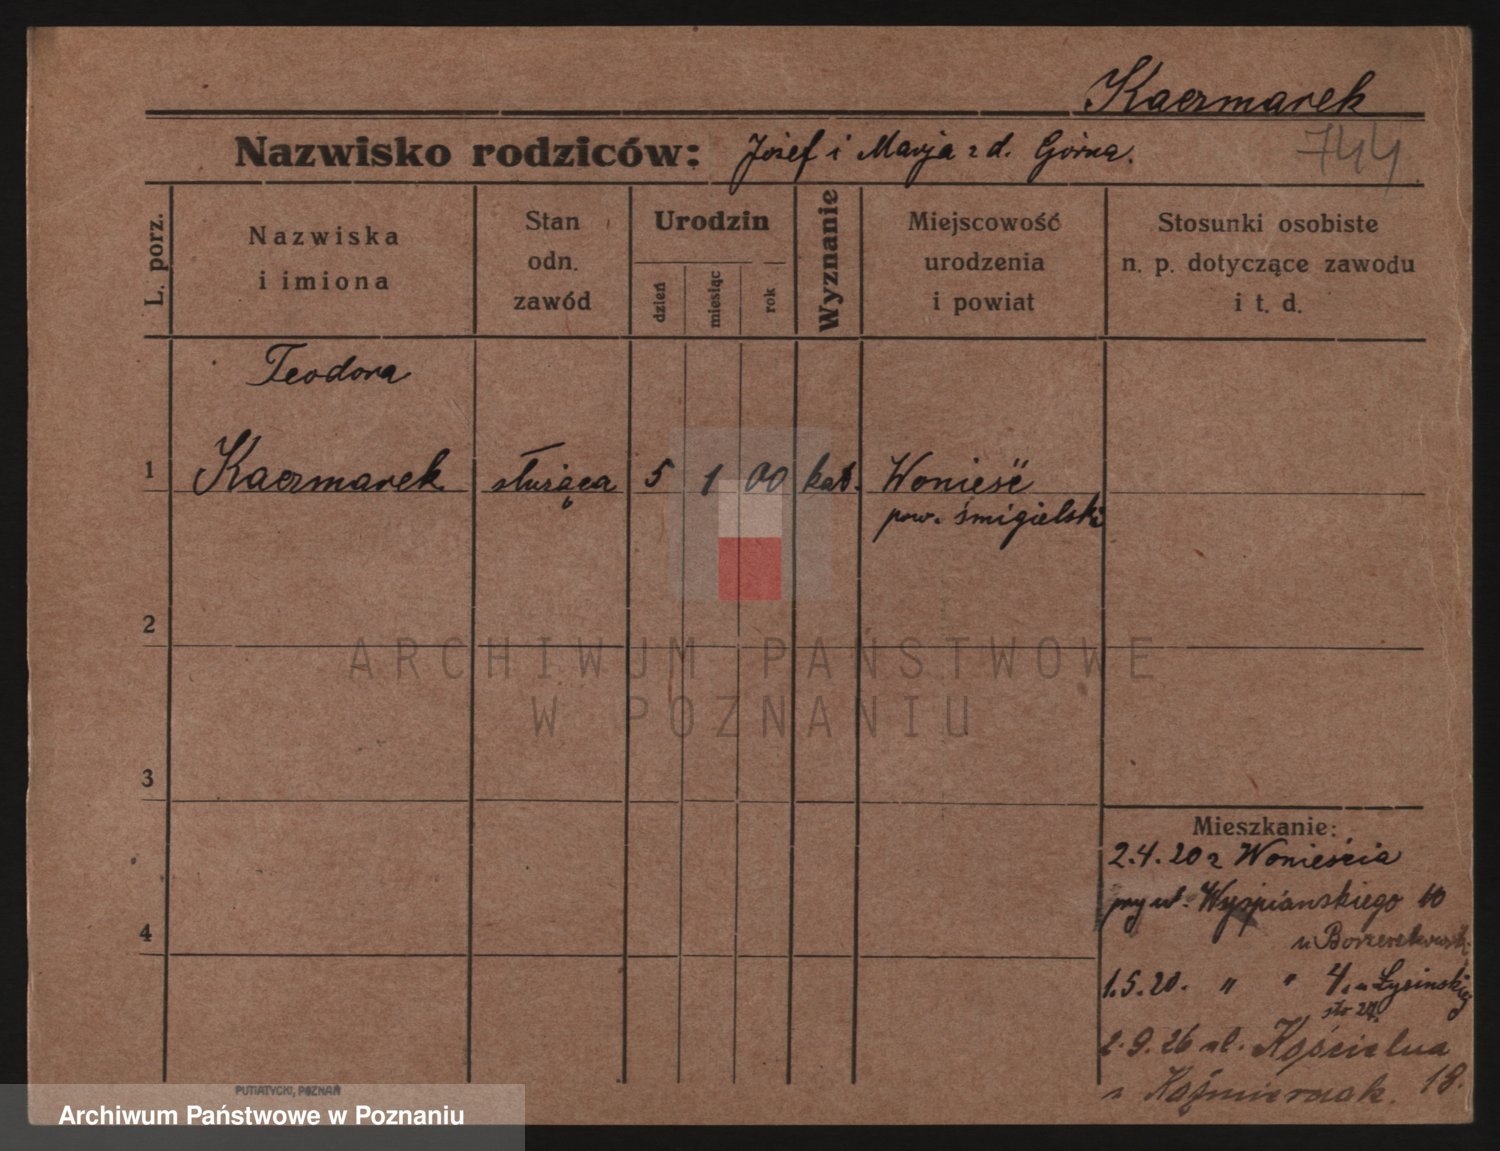 Kaczmarek
744
Nazwisko rodziców: Józef i Marja z d. Górna.
L. porz.
Nazwiska
i imiona
Stan
odn.
zawód
Urodzin
dzień
miesiąc
rok
Wyznanie
Miejscowość
urodzenia
i powiat
Stosunki osobiste
n. p. dotyczące zawodu
i t. d.
Teodora
1 Kaczmarek służąca 5 1 00 kat. Wonieść
pow. śmigielski
2
ARCHIWUM PAŃSTWOWE
W POZNANIU
3
4
Mieszkanie:
2.4.20 z Wonieścia
przy ul. Wyspianskiego 10
u
1.5.20. " " 4. u Łysinskiej
2.9.26 ul. Kościelna
18.
PUTIATYCKI, POZNAŃ
Archiwum Państwowe w Poznaniu